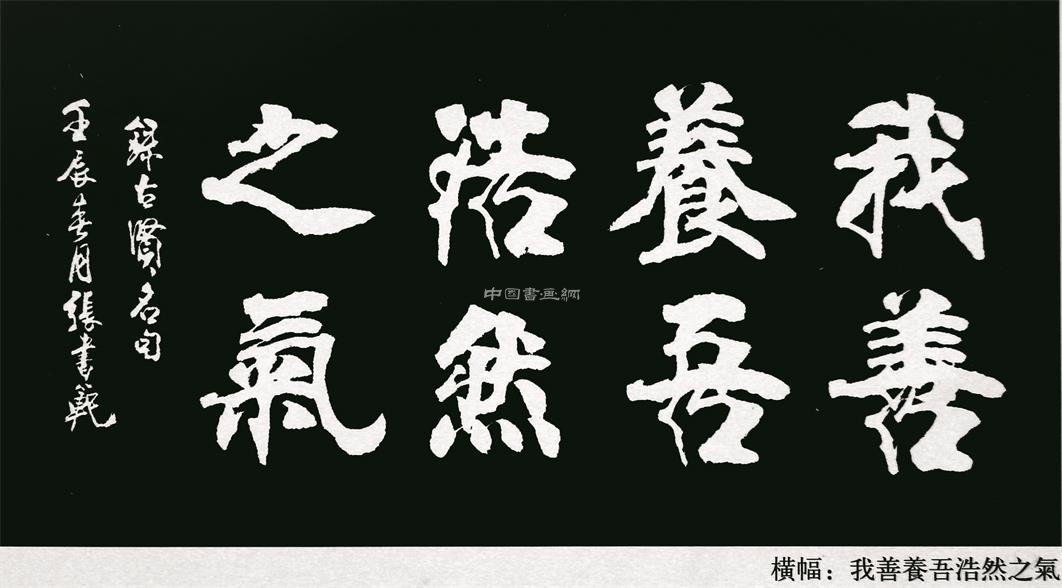 我善
養吾
浩然
之氣
錄古賢名句
壬辰春月張書範
中国書画網
橫幅：我善養吾浩然之氣